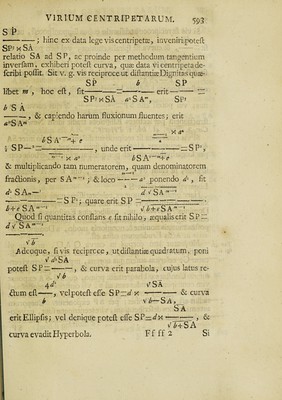 VIRIUM CENTRIPETARUM. 593
S P
———— ; hinc ex data lege vis centripetæ, inveniri potest
SP³ × SA
relatio SA ad SP, ac proinde per methodum tangentium
inversam, exhiberi potest curva, quæ data vi centripeta de-
scribi possit. Sit v. g. vis reciproce ut distantiæ Dignitas quæ-
SP b SP
libet m, hoc est, sit ———— = ———— erit ———— =
SP³ × SA a² SAᵐ, SP³
b S A
————, & capiendo harum fluxionum fluentes; erit
a² SAᵐ
& multiplicando tam numeratorem, quam denominatorem
fractionis, per SAᵐ⁻¹; & loco ponendo d², fit
= SP²; quare erit SP =
b + e SAᵐ⁻¹ √b + e SAᵐ⁻¹
Quod si quantitas constans e fit nihilo, æqualis erit SP =
d √ SAᵐ⁻¹
√b
Adeoque, si vis reciproce, ut distantiæ quadratum, poni
√ d² SA
potest SP = ————, & curva erit parabola, cujus latus re-
√b
4 d² √ SA
ctum est ——, vel potest esse SP = d × ———— & curva
b √ b — SA,
SA
erit Ellipsis; vel denique potest esse SP = d × ————, &
√ b + SA
curva evadit Hyperbola. Ff ff 2 Si